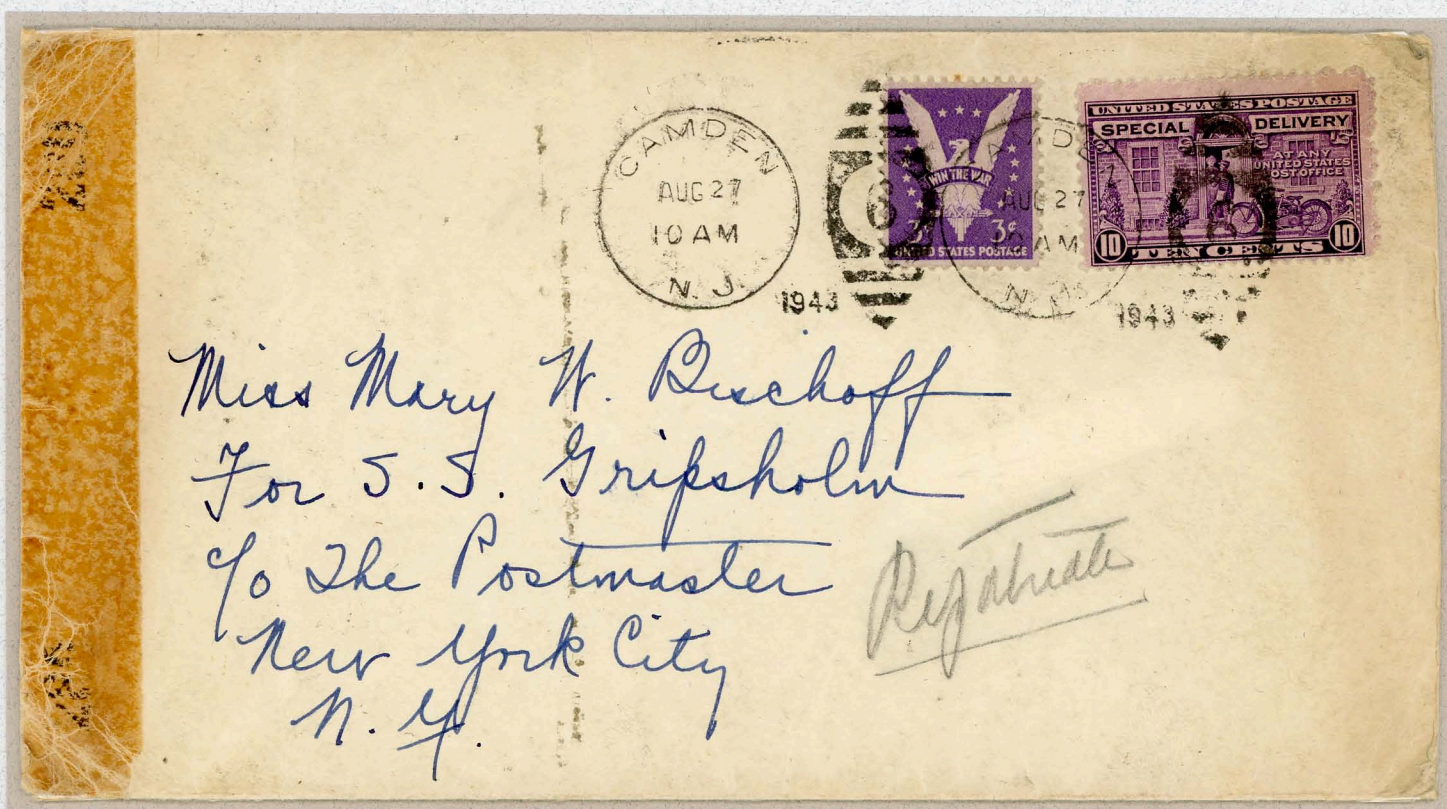 CAMDEN
AUG 27
10 AM
N. J.
1943
6
WIN THE WAR
3¢ 3¢
UNITED STATES POSTAGE
AUG 27
AM
N. J.
1943
UNITED STATES POSTAGE
SPECIAL DELIVERY
AT ANY
UNITED STATES
POST OFFICE
10 TEN CENTS 10
Miss Mary W. Bischoff
For S.S. Gripsholm
c/o The Postmaster
New York City
N. Y.